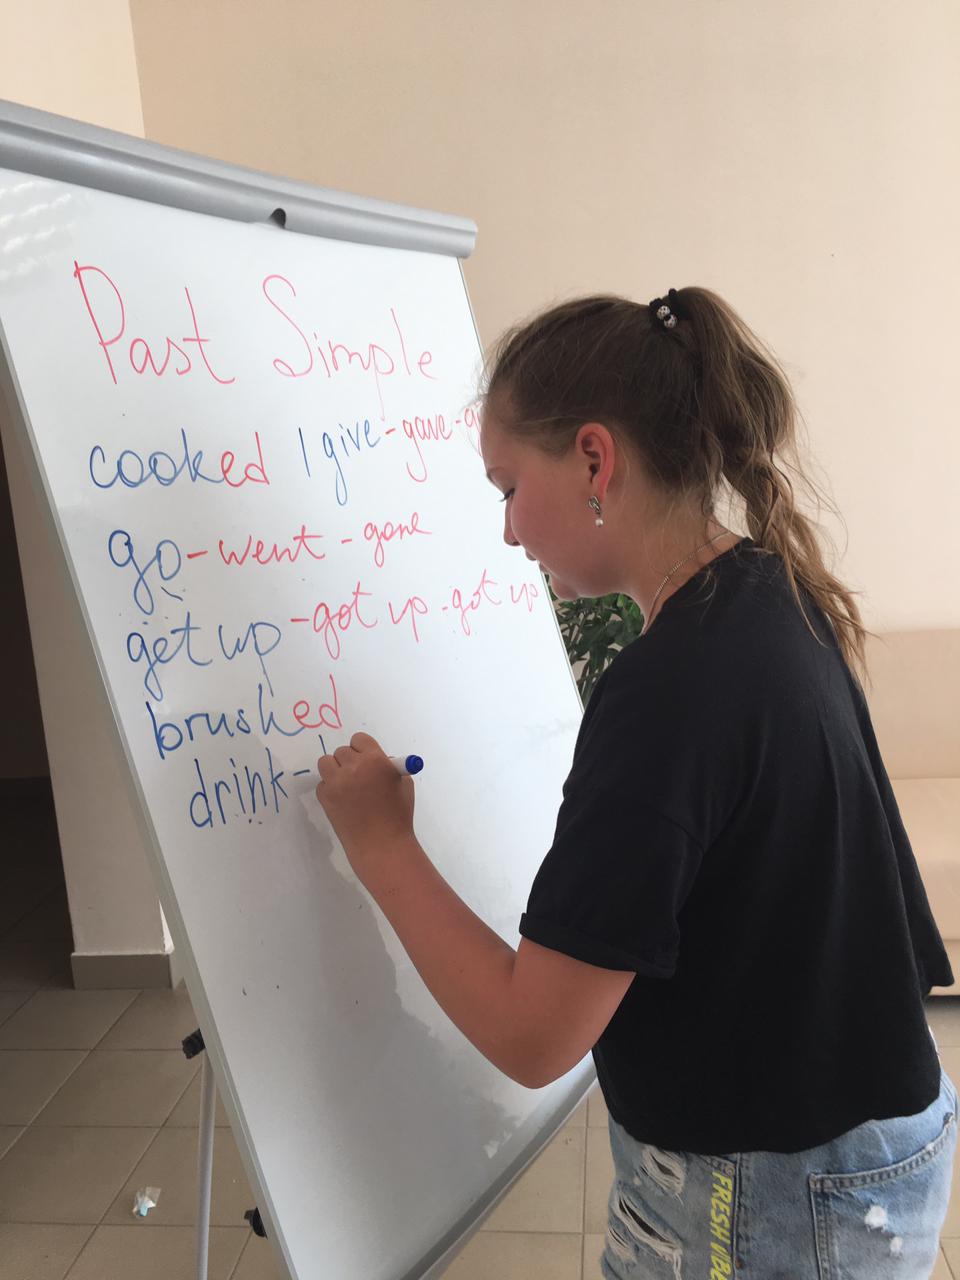 Past Simple
cooked / give - gave -
go - went - gone
get up - got up - got up
brushed
drink -
FRESH VIBE